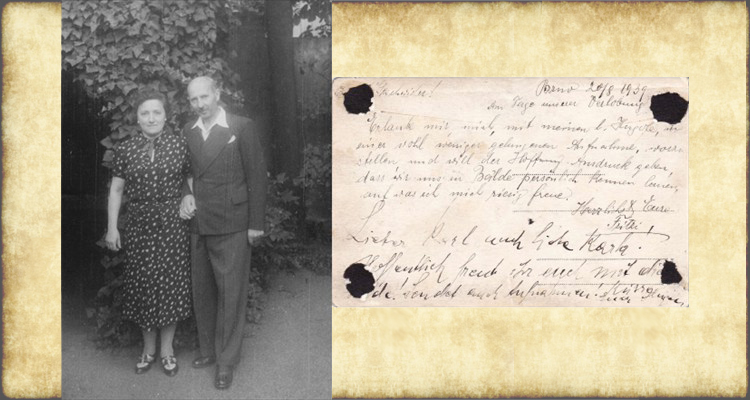 Brno 20/8 1939
Am Tage unserer Verlobung
Erlaubt mir, mich mit meinem l. in
einer wohl weniger gelungenen Aufnahme, vorzu
stellen, und will der Hoffnung Ausdruck geben,
dass wir uns in Bälde persönlich kennen lernen,
auf was ich mich riesig freue.
Herzlichst Eure
Lieber Karl und liebe Karla!
Hoffentlich freut ihr euch mit
sendet auch Aufnahmen! Eure